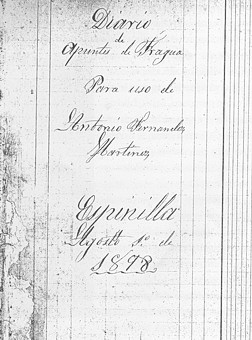 Diario
de
apuntes de Fragua
Para uso de
Antonio Fernandez
Martinez
Espinilla
Agosto 1º de
1878